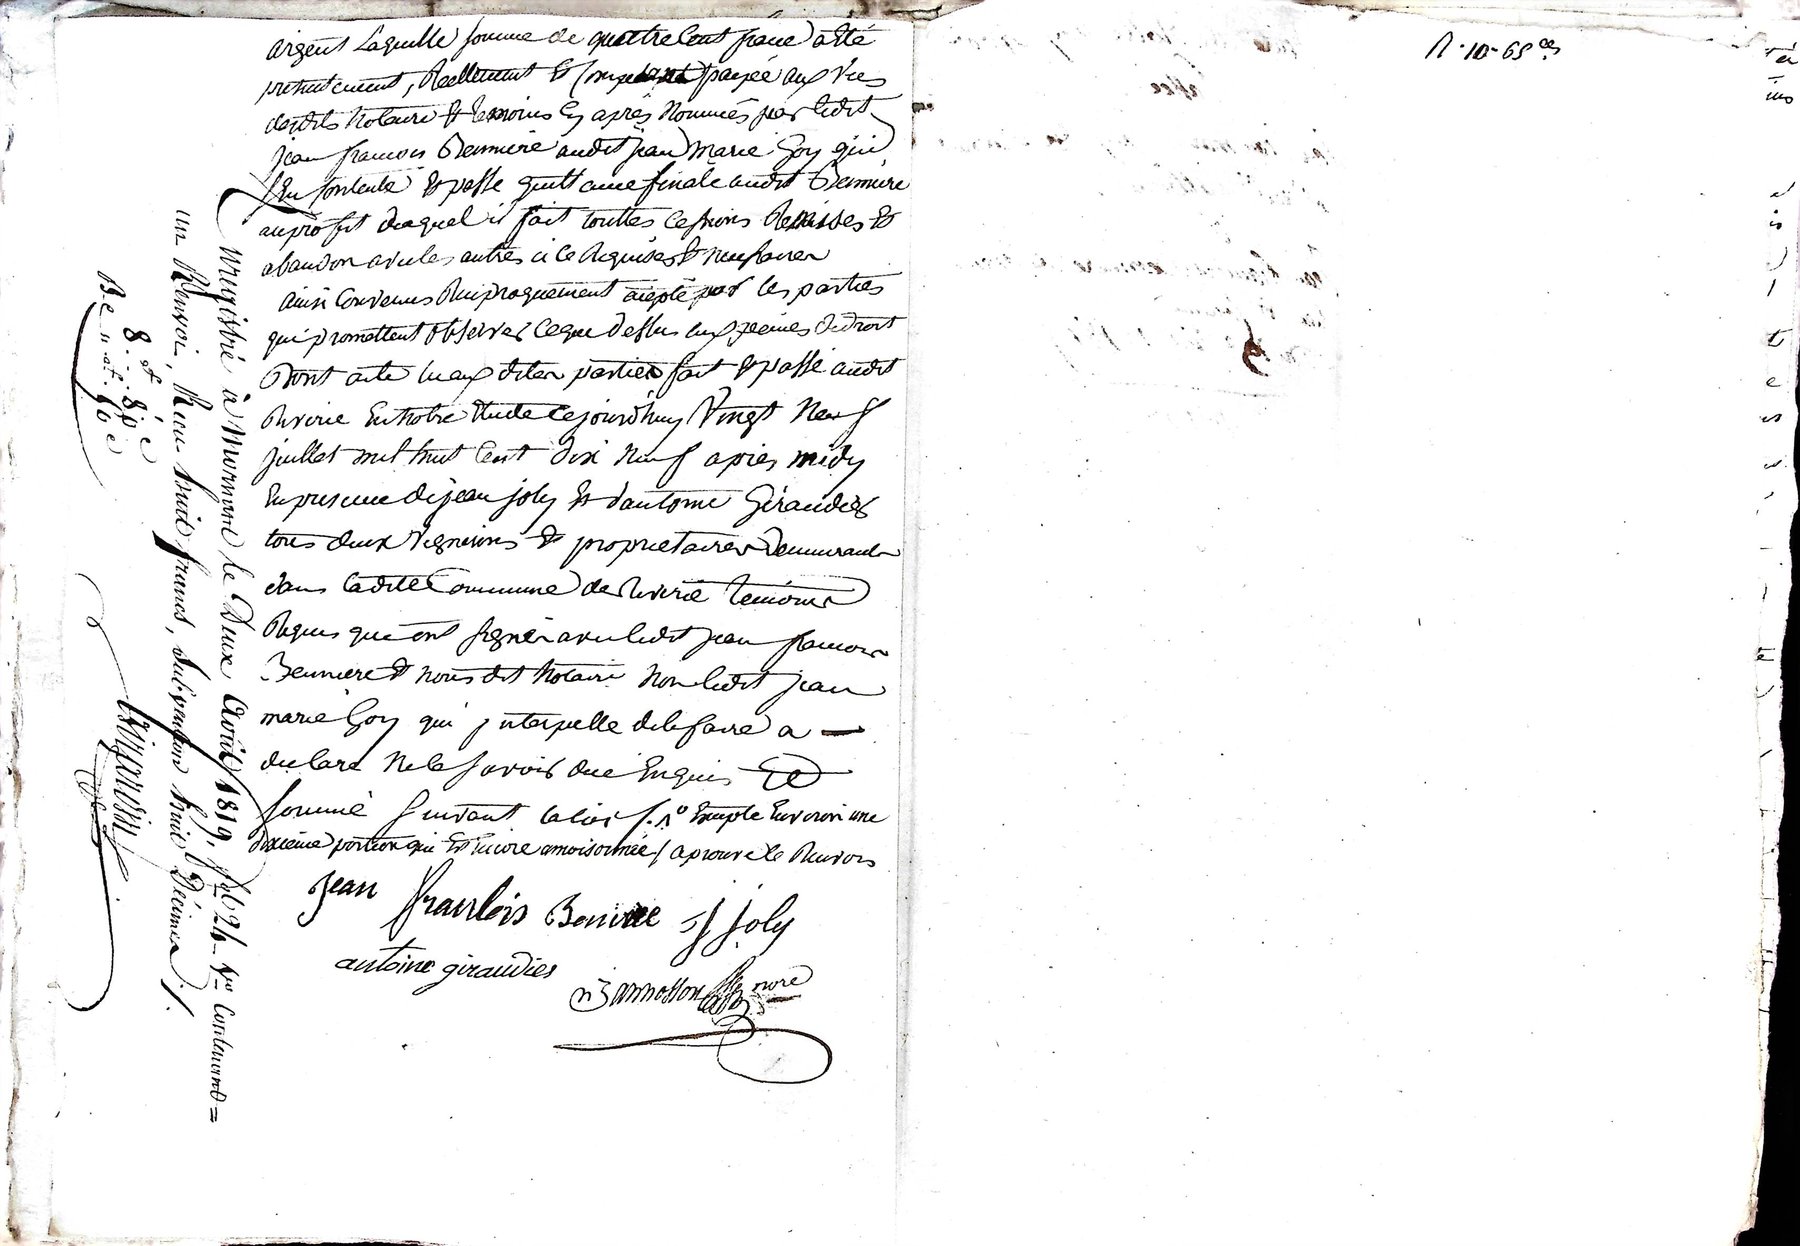 argent Laquelle somme de quattre Cent franc a Eté
presentement, Reellement & payée aux Vües
desdits Notaire & temoins Cy après Nommés par ledit
jean francois Bermiere audit jean Marie Goy qui
s'En Contente & passe quittance finale audit Bermiere
au profit duquel il fait touttes Cessions Remises &
abandon avec les autres à Ce Requises & necessaires
ainsi Convenus Reciproquement acepté par les parties
qui promettent observer Ceque dessus aux peines dedroit
Dont acte Lu aux dites parties fait & passé audit
Riverie En Notre Etude Ce jourd'huy Vingt Neuf
juillet mil huit Cent dix Neuf apres midy
En presence de jean joly & d'antoine Giraudier
tous deux Vignerons & proprietaires Demeurants
dans Ladite Commune de Riverie temoins
Requis qui ont signés avec ledit jean francois
Bermiere & nous dit Notaire Non ledit jean
marie Goy qui interpellé de le faire a
declaré Ne le savoir due Enquis &
sommé suivant la loi /. 1° Excepté Environ une
dixieme portion qui Est Encore amoisonnée / aprouvé le Renvois
Jean francois Bermiere J joly
antoine giraudier
notre
Enregistré à Mornant le Deux Août 1819, fol. 24 v.so Contenant =
un Renvoi, Reçu huit francs, subvention huit Décimes ./.
8. et 8.e
R.10-65 ces